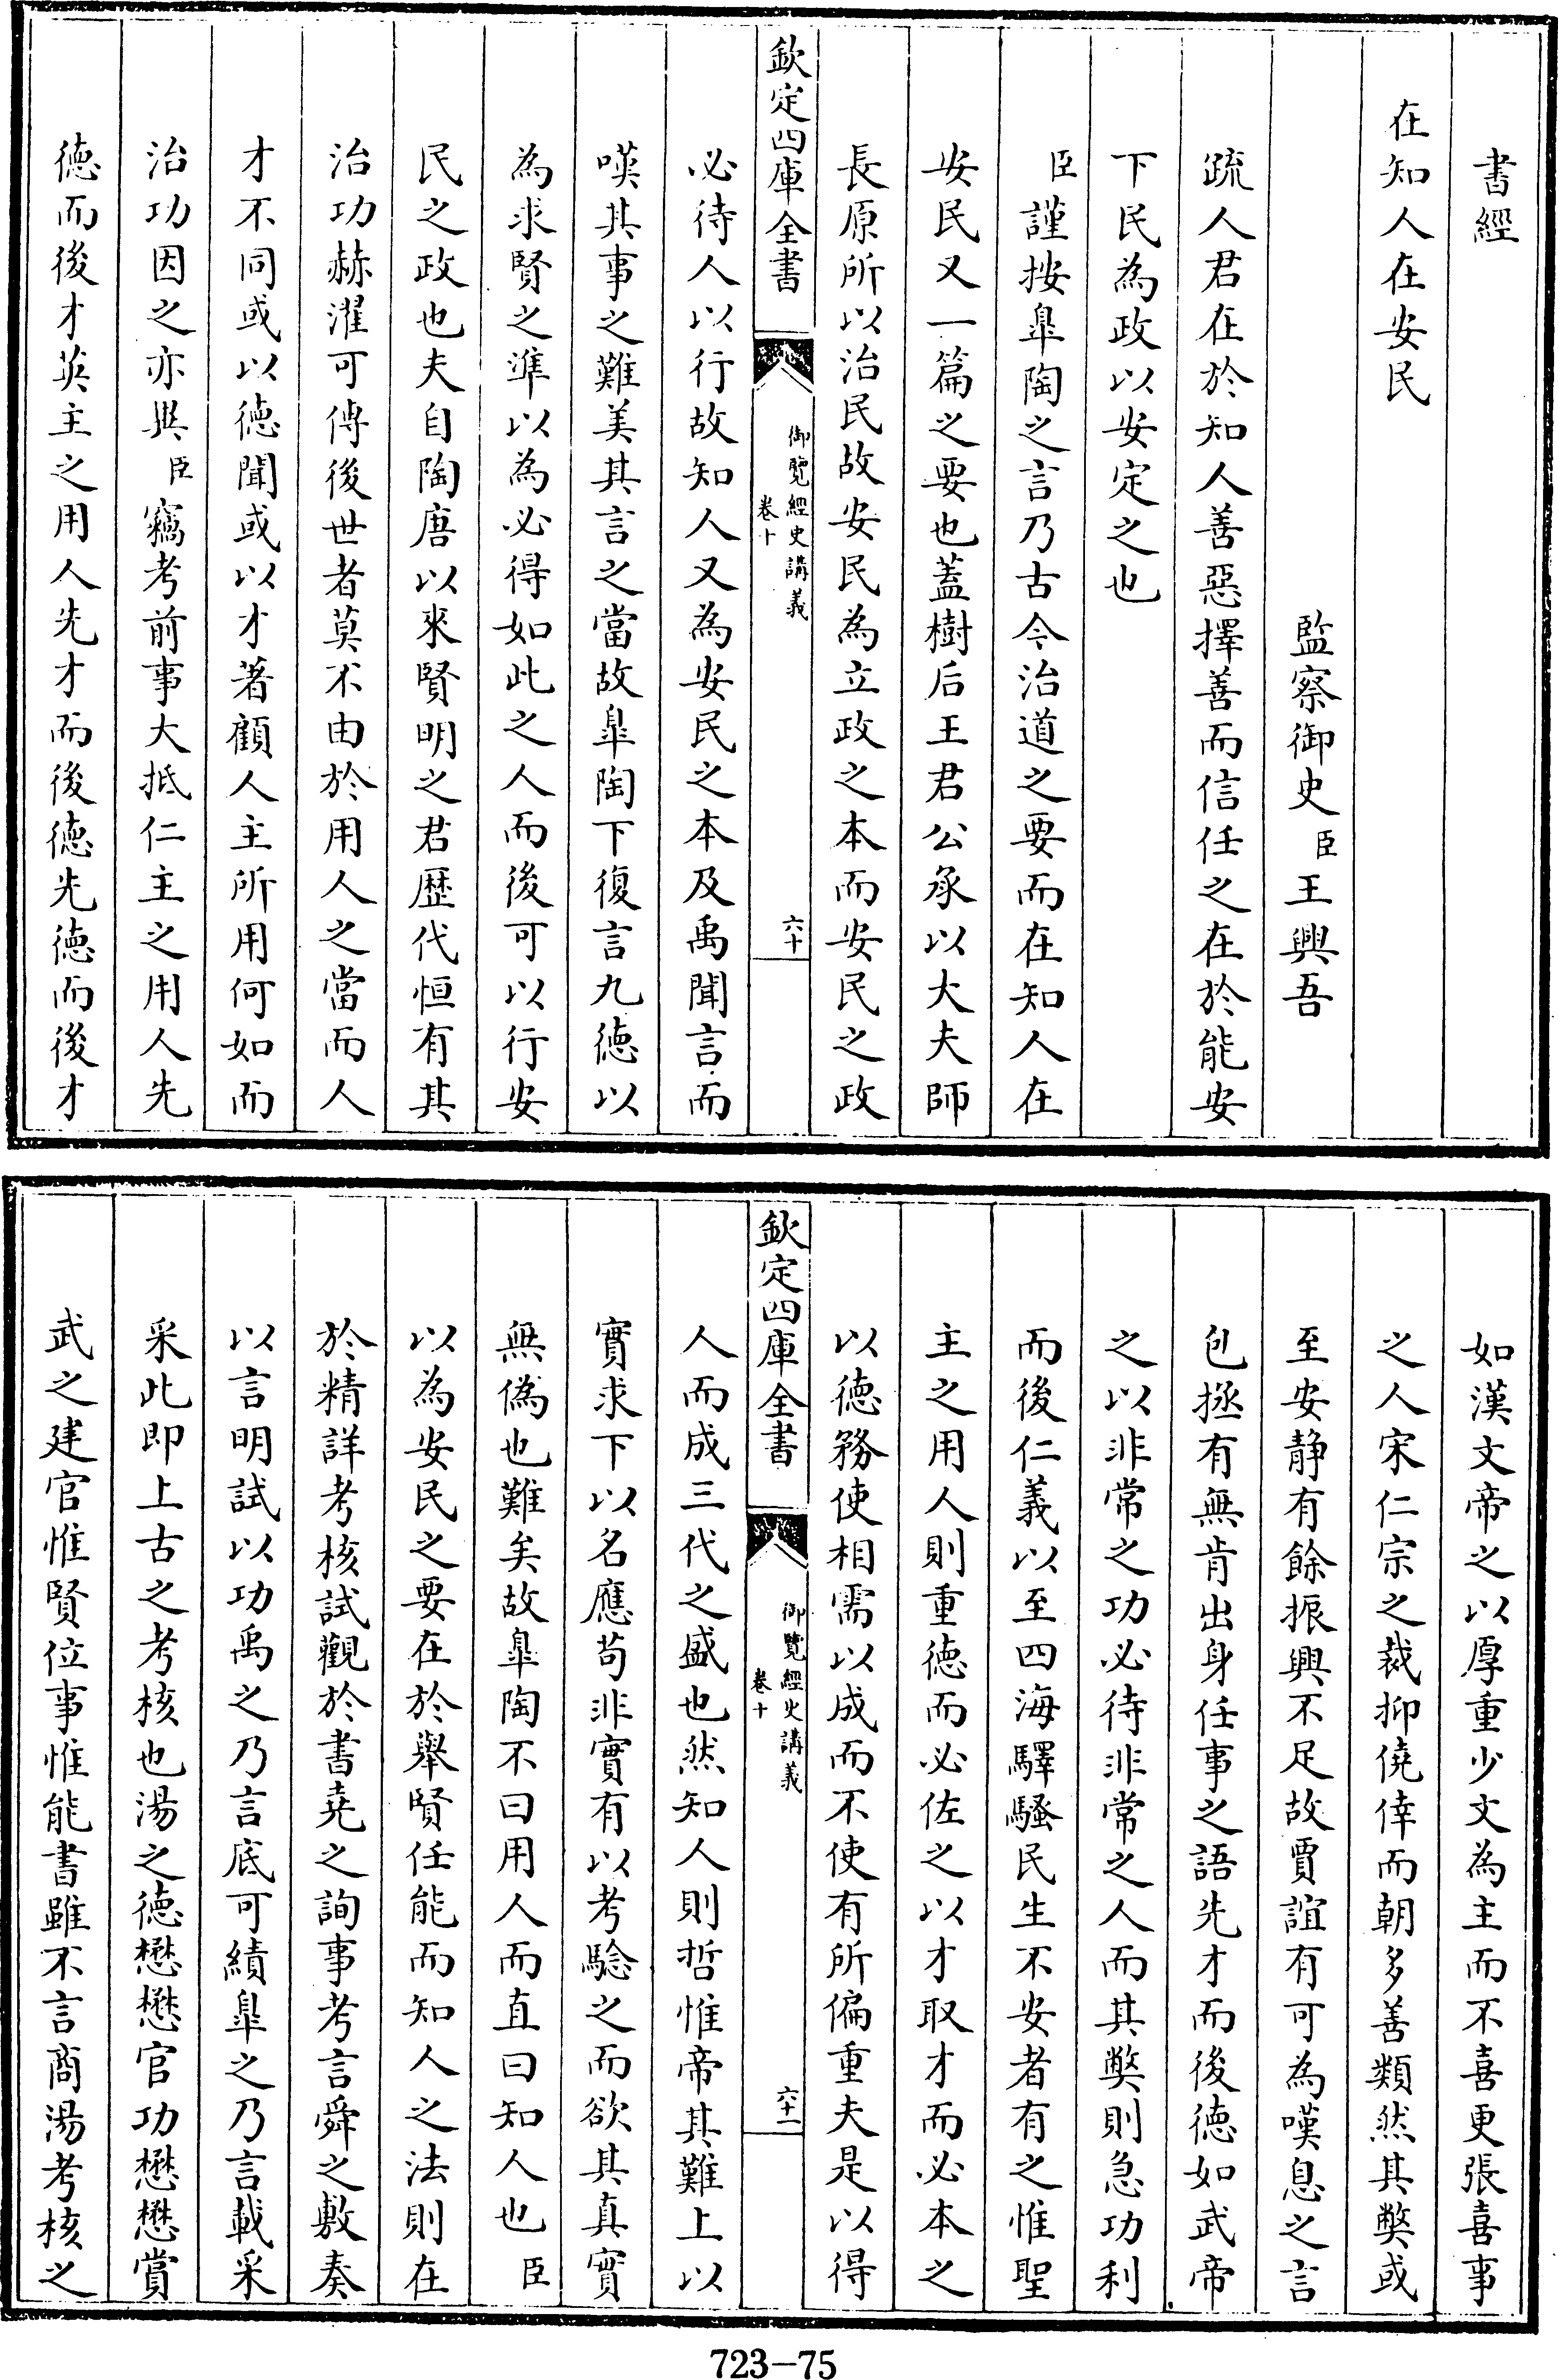 書經
在知人在安民
監察御史臣王興吾
疏人君在於知人善惡擇善而信任之在於能安
下民為政以安定之也
臣謹按臯陶之言乃古今治道之要而在知人在
安民又一篇之要也蓋樹后王君公承以大夫師
長原所以治民故安民為立政之本而安民之政
欽定四庫全書
御覽經史講義
卷十
六十
必待人以行故知人又為安民之本及禹聞言而
嘆其事之難美其言之當故臯陶下復言九德以
為求賢之準以為必得如此之人而後可以行安
民之政也夫自陶唐以來賢明之君歷代恒有其
治功赫濯可傳後世者莫不由於用人之當而人
才不同或以德聞或以才著顧人主所用何如而
治功因之亦異臣竊考前事大抵仁主之用人先
德而後才英主之用人先才而後德先德而後才
如漢文帝之以厚重少文為主而不喜更張喜事
之人宋仁宗之裁抑僥倖而朝多善類然其獘或
至安靜有餘振興不足故賈誼有可為嘆息之言
包拯有無肯出身任事之語先才而後德如武帝
之以非常之功必待非常之人而其獘則急功利
而後仁義以至四海驛騷民生不安者有之惟聖
主之用人則重德而必佐之以才取才而必本之
以德務使相需以成而不使有所偏重夫是以得
欽定四庫全書
御覽經史講義
卷十
六十一
人而成三代之盛也然知人則哲惟帝其難上以
實求下以名應苟非實有以考驗之而欲其真實
無偽也難矣故臯陶不曰用人而直曰知人也臣
以為安民之要在於舉賢任能而知人之法則在
於精詳考核試觀於書堯之詢事考言舜之敷奏
以言明試以功禹之乃言底可績臯之乃言載采
采此即上古之考核也湯之德懋懋官功懋懋賞
武之建官惟賢位事惟能書雖不言商湯考核之
723-75